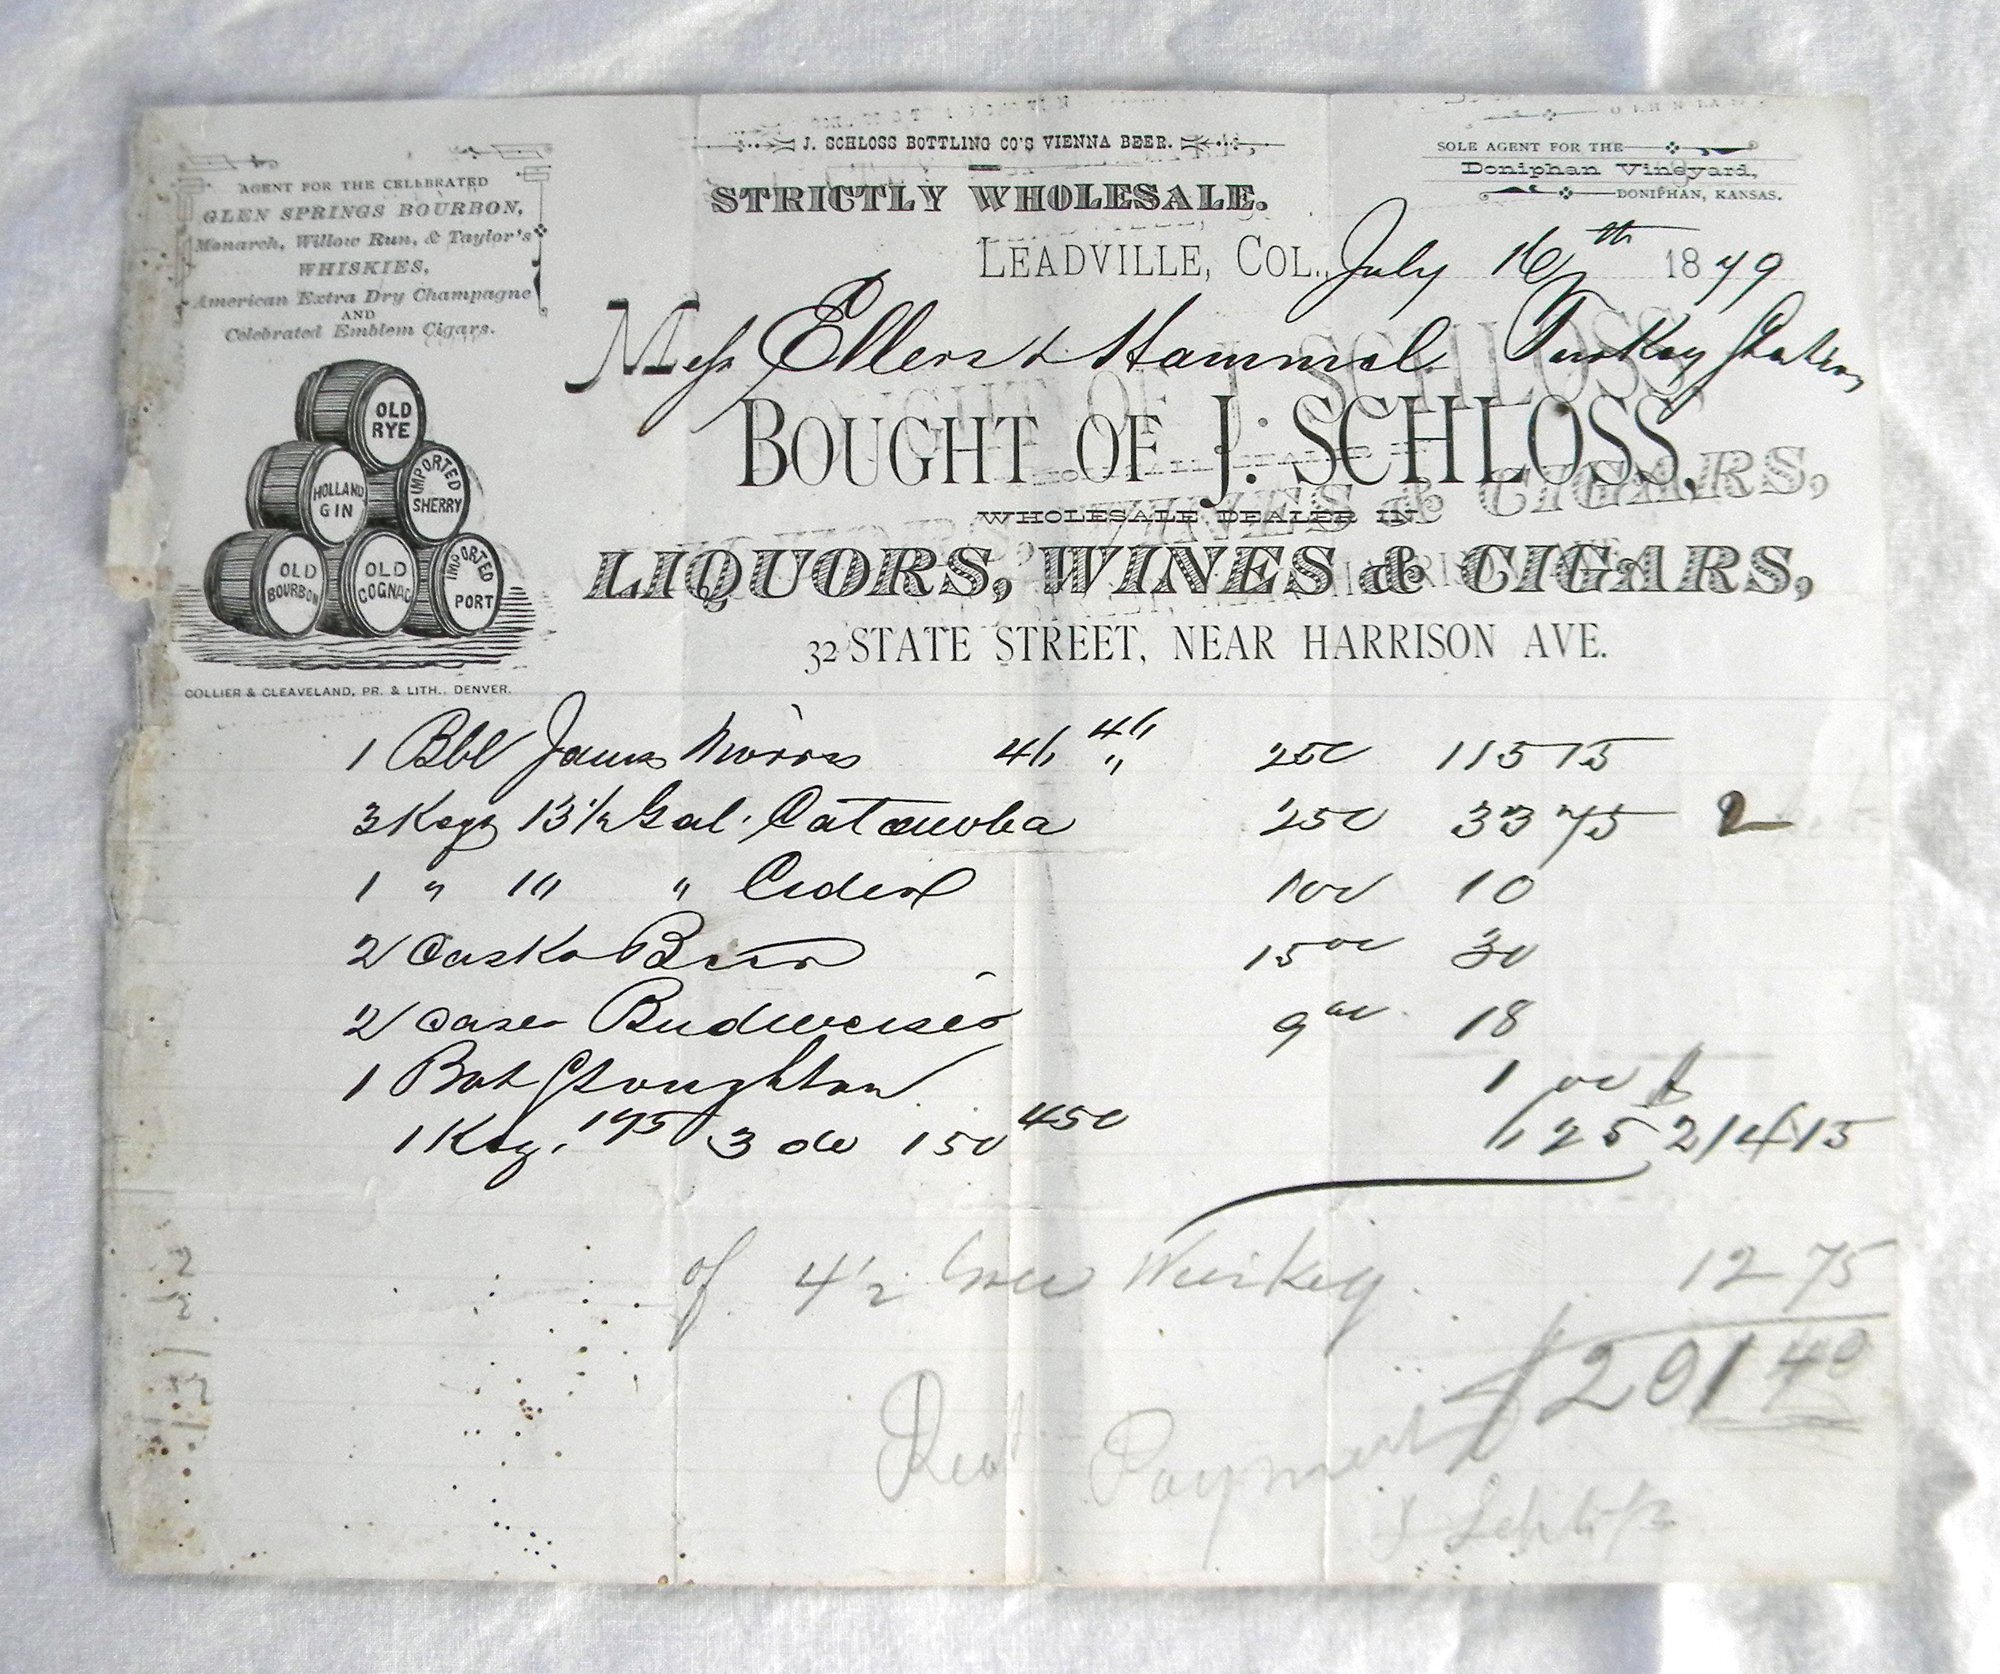 J. SCHLOSS BOTTLING CO'S VIENNA BEER.
STRICTLY WHOLESALE.
SOLE AGENT FOR THE
Doniphan Vineyard,
DONIPHAN, KANSAS.
AGENT FOR THE CELEBRATED
GLEN SPRINGS BOURBON,
Monarch, Willow Run, & Taylor's
WHISKIES,
American Extra Dry Champagne
AND
Celebrated Emblem Cigars.
LEADVILLE, COL., July 16th 1879
Mess Ellers & Hammel. Turkey Station
BOUGHT OF J. SCHLOSS,
WHOLESALE DEALER IN
LIQUORS, WINES & CIGARS,
32 STATE STREET, NEAR HARRISON AVE.
OLD RYE
HOLLAND GIN
IMPORTED SHERRY
OLD BOURBON
OLD COGNAC
IMPORTED PORT
COLLIER & CLEAVELAND, PR. & LITH., DENVER.
1 Bbl James Morris 250 115 75
3 Kegs 13½ Gal. Catawba 250 33 75
1 " 10 " Cider 100 10
2 Casks Beer 15 00 30
2 Cases Budweiser 9 00 18
1 Bot Stoughton 1 00
1 Keg. 175 3 do 150 450 6,25 214 75
of 4½ Whiskey 12 75
$201 40
Rec'd Payment
J Schloss